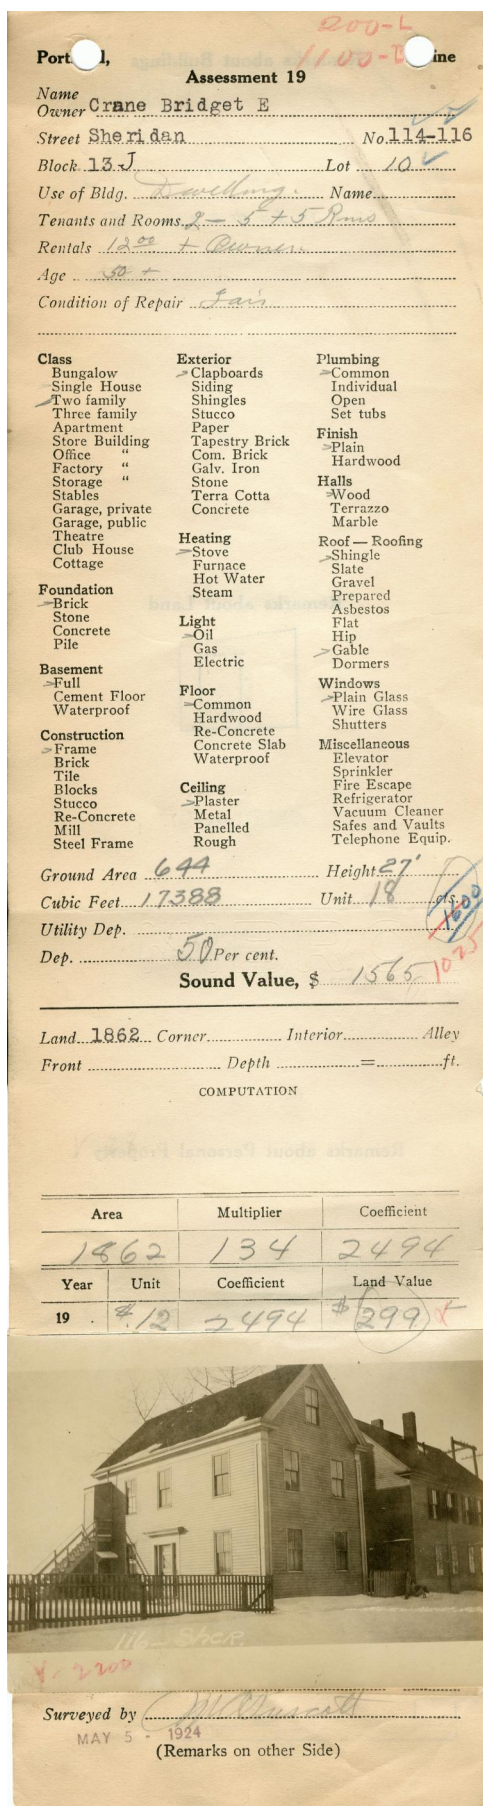 200-L
1100-B
Port l, ine
Assessment 19
Name
Owner Crane Bridget E
Street Sheridan No. 114-116
Block 13 J Lot 10
Use of Bldg. Dwelling. Name
Tenants and Rooms 2 - 5 + 5 Rms
Rentals 12 00 + Owner
Age 50 +
Condition of Repair Fair
Class
Bungalow
Single House
Two family
Three family
Apartment
Store Building
Office "
Factory "
Storage "
Stables
Garage, private
Garage, public
Theatre
Club House
Cottage
Foundation
Brick
Stone
Concrete
Pile
Basement
Full
Cement Floor
Waterproof
Construction
Frame
Brick
Tile
Blocks
Stucco
Re-Concrete
Mill
Steel Frame
Exterior
Clapboards
Siding
Shingles
Stucco
Paper
Tapestry Brick
Com. Brick
Galv. Iron
Stone
Terra Cotta
Concrete
Heating
Stove
Furnace
Hot Water
Steam
Light
Oil
Gas
Electric
Floor
Common
Hardwood
Re-Concrete
Concrete Slab
Waterproof
Ceiling
Plaster
Metal
Panelled
Rough
Plumbing
Common
Individual
Open
Set tubs
Finish
Plain
Hardwood
Halls
Wood
Terrazzo
Marble
Roof — Roofing
Shingle
Slate
Gravel
Prepared
Asbestos
Flat
Hip
Gable
Dormers
Windows
Plain Glass
Wire Glass
Shutters
Miscellaneous
Elevator
Sprinkler
Fire Escape
Refrigerator
Vacuum Cleaner
Safes and Vaults
Telephone Equip.
Ground Area 644 Height 27'
Cubic Feet 17388 Unit 18 cts.
1600
Utility Dep.
Dep. 50 Per cent.
1075
Sound Value, $ 1565
Land 1862 Corner Interior Alley
Front Depth = ft.
COMPUTATION
Area Multiplier Coefficient
1862 134 2494
Year Unit Coefficient Land Value
19 $.12 2494 $ 299
116 - Sher.
2200
Surveyed by
MAY 5 - 1924
(Remarks on other Side)